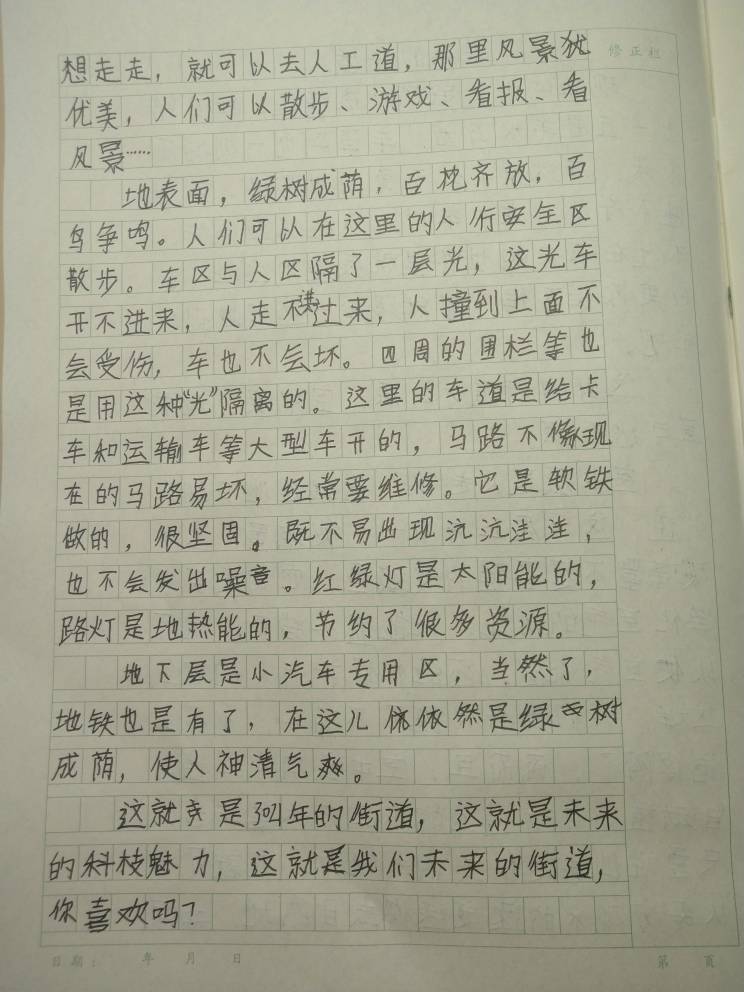 想走走，就可以去人工道，那里风景犹
修正栏
优美，人们可以散步、游戏、看报、看
风景……
地表面，绿树成荫，百花齐放，百
鸟争鸣。人们可以在这里的人行安全区
散步。车区与人区隔了一层光，这光车
开不进来，人走不过来，人撞到上面不
会受伤，车也不会坏。四周的围栏等也
是用这种“光”隔离的。这里的车道是给卡
车和运输车等大型车开的，马路不像现
在的马路易坏，经常要维修。它是软铁
做的，很坚固。既不易出现沆沆洼洼，
也不会发出噪音。红绿灯是太阳能的，
路灯是地热能的，节约了很多资源。
地下层是小汽车专用区，当然了，
地铁也是有了，在这儿依然是绿树
成荫，使人神清气爽。
这就是3021年的街道，这就是未来
的科技魅力，这就是我们未来的街道，
你喜欢吗？
日期： 年 月 日
第 页